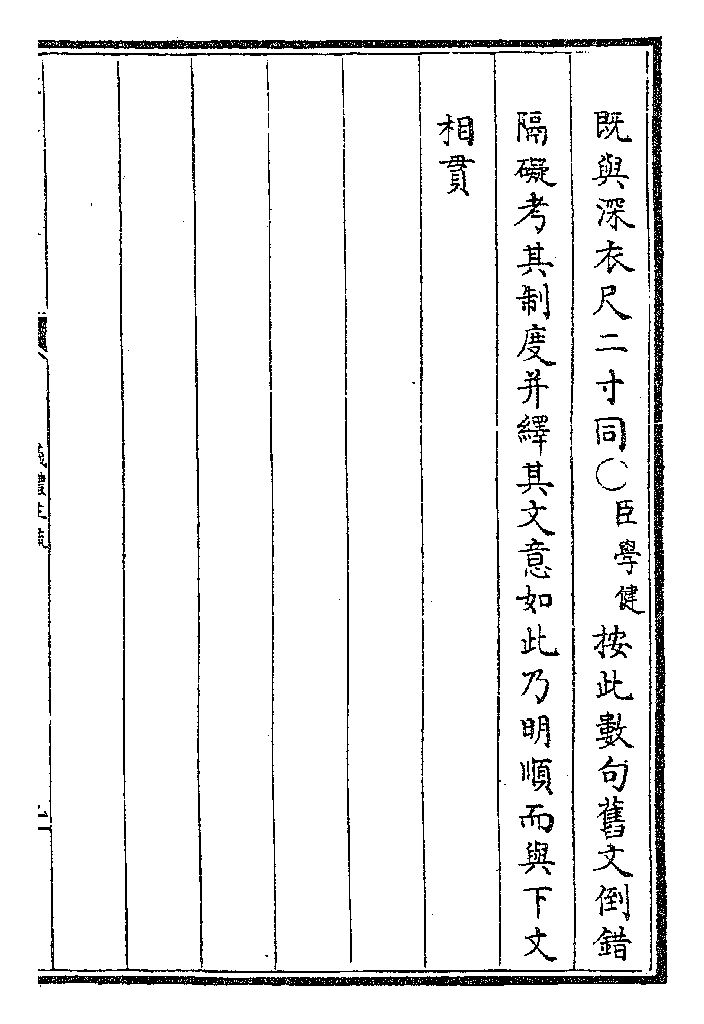 既與深衣尺二寸同〇臣學健按此數句舊文倒錯
隔礙考其制度并繹其文意如此乃明順而與下文
相貫
儀禮注疏